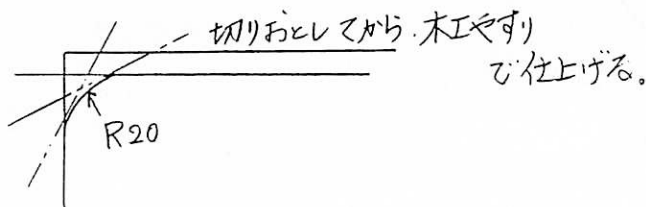 切りおとしてから、木工やすり
で仕上げる。
R20